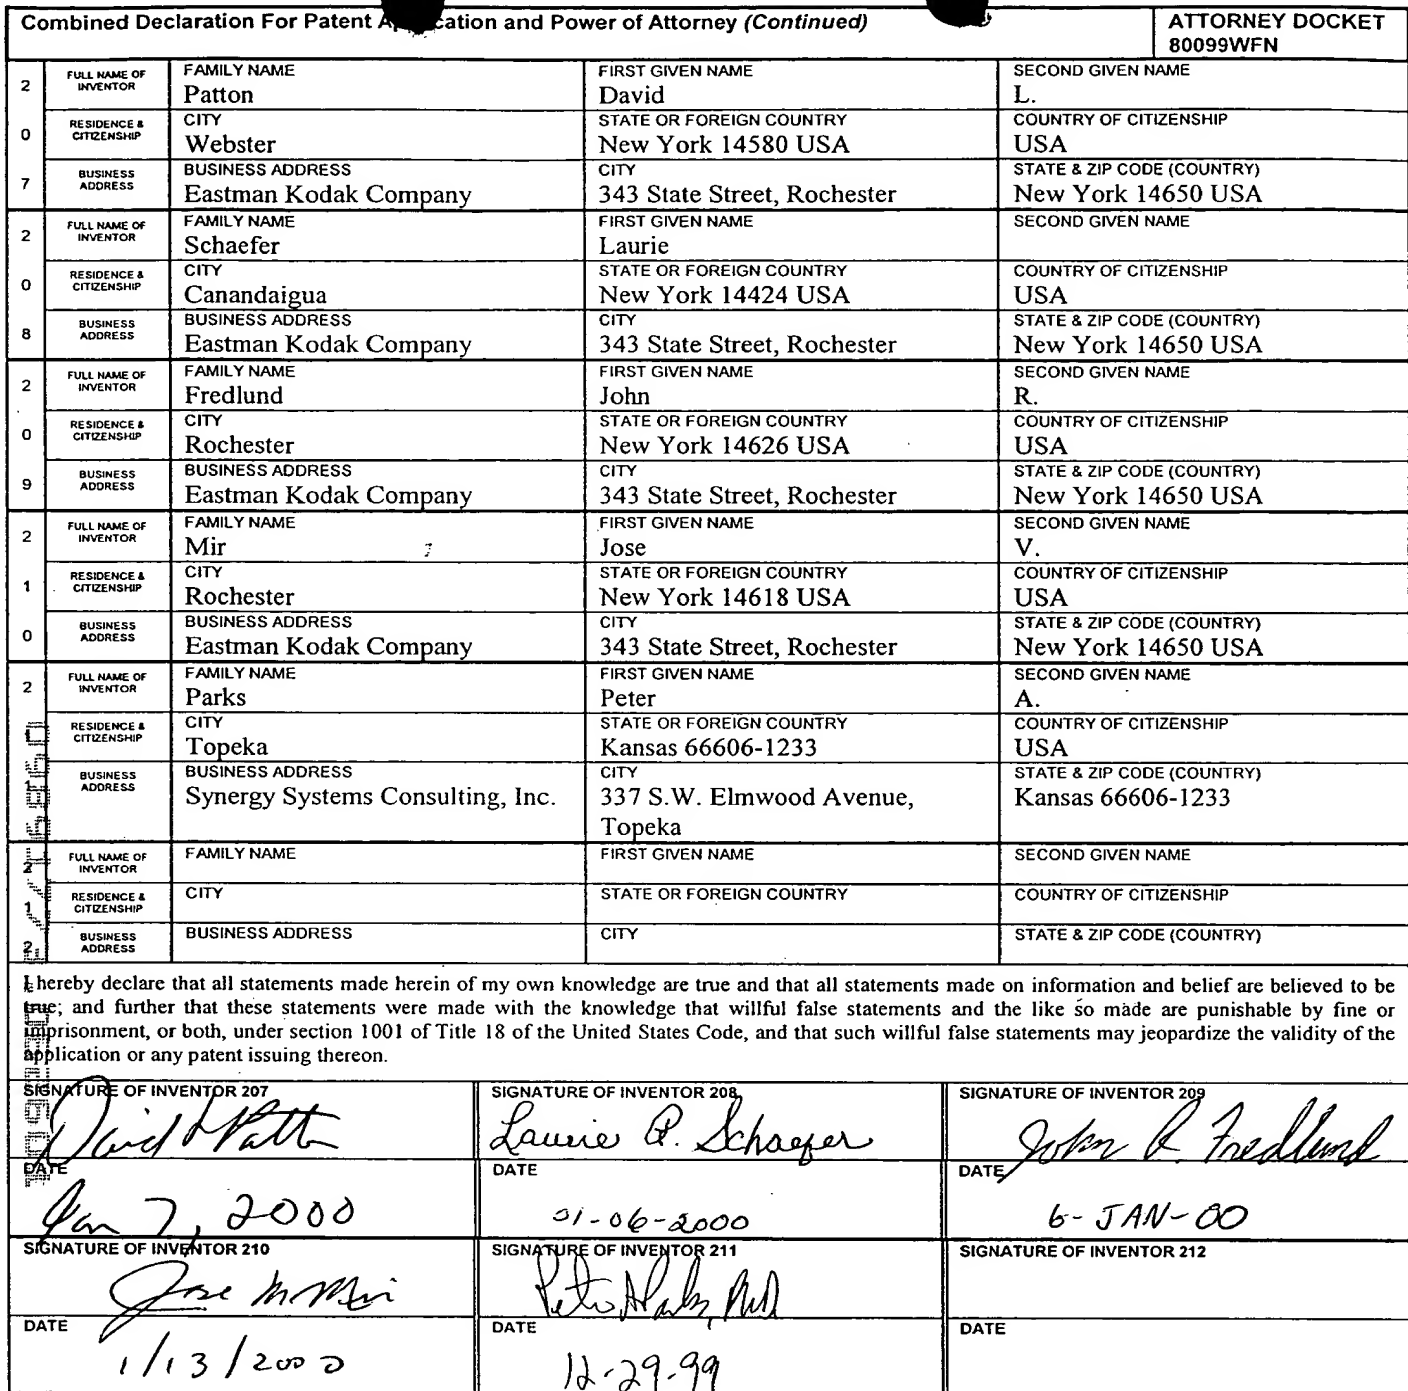 Combined Declaration For Patent Application and Power of Attorney (Continued)
ATTORNEY DOCKET
80099WFN
2 0 7
FULL NAME OF INVENTOR
FAMILY NAME
Patton
FIRST GIVEN NAME
David
SECOND GIVEN NAME
L.
RESIDENCE & CITIZENSHIP
CITY
Webster
STATE OR FOREIGN COUNTRY
New York 14580 USA
COUNTRY OF CITIZENSHIP
USA
BUSINESS ADDRESS
BUSINESS ADDRESS
Eastman Kodak Company
CITY
343 State Street, Rochester
STATE & ZIP CODE (COUNTRY)
New York 14650 USA
2 0 8
FULL NAME OF INVENTOR
FAMILY NAME
Schaefer
FIRST GIVEN NAME
Laurie
SECOND GIVEN NAME
RESIDENCE & CITIZENSHIP
CITY
Canandaigua
STATE OR FOREIGN COUNTRY
New York 14424 USA
COUNTRY OF CITIZENSHIP
USA
BUSINESS ADDRESS
BUSINESS ADDRESS
Eastman Kodak Company
CITY
343 State Street, Rochester
STATE & ZIP CODE (COUNTRY)
New York 14650 USA
2 0 9
FULL NAME OF INVENTOR
FAMILY NAME
Fredlund
FIRST GIVEN NAME
John
SECOND GIVEN NAME
R.
RESIDENCE & CITIZENSHIP
CITY
Rochester
STATE OR FOREIGN COUNTRY
New York 14626 USA
COUNTRY OF CITIZENSHIP
USA
BUSINESS ADDRESS
BUSINESS ADDRESS
Eastman Kodak Company
CITY
343 State Street, Rochester
STATE & ZIP CODE (COUNTRY)
New York 14650 USA
2 1 0
FULL NAME OF INVENTOR
FAMILY NAME
Mir
FIRST GIVEN NAME
Jose
SECOND GIVEN NAME
V.
RESIDENCE & CITIZENSHIP
CITY
Rochester
STATE OR FOREIGN COUNTRY
New York 14618 USA
COUNTRY OF CITIZENSHIP
USA
BUSINESS ADDRESS
BUSINESS ADDRESS
Eastman Kodak Company
CITY
343 State Street, Rochester
STATE & ZIP CODE (COUNTRY)
New York 14650 USA
2
FULL NAME OF INVENTOR
FAMILY NAME
Parks
FIRST GIVEN NAME
Peter
SECOND GIVEN NAME
A.
RESIDENCE & CITIZENSHIP
CITY
Topeka
STATE OR FOREIGN COUNTRY
Kansas 66606-1233
COUNTRY OF CITIZENSHIP
USA
BUSINESS ADDRESS
BUSINESS ADDRESS
Synergy Systems Consulting, Inc.
CITY
337 S.W. Elmwood Avenue,
Topeka
STATE & ZIP CODE (COUNTRY)
Kansas 66606-1233
2 1 2
FULL NAME OF INVENTOR
FAMILY NAME
FIRST GIVEN NAME
SECOND GIVEN NAME
RESIDENCE & CITIZENSHIP
CITY
STATE OR FOREIGN COUNTRY
COUNTRY OF CITIZENSHIP
BUSINESS ADDRESS
BUSINESS ADDRESS
CITY
STATE & ZIP CODE (COUNTRY)
I hereby declare that all statements made herein of my own knowledge are true and that all statements made on information and belief are believed to be
true; and further that these statements were made with the knowledge that willful false statements and the like so made are punishable by fine or
imprisonment, or both, under section 1001 of Title 18 of the United States Code, and that such willful false statements may jeopardize the validity of the
application or any patent issuing thereon.
SIGNATURE OF INVENTOR 207
David L Patton
SIGNATURE OF INVENTOR 208
Laurie P. Schaefer
SIGNATURE OF INVENTOR 209
John R. Fredlund
DATE
Jan 7, 2000
DATE
01-06-2000
DATE
6-JAN-00
SIGNATURE OF INVENTOR 210
Jose M Mir
SIGNATURE OF INVENTOR 211
Peter A Parks, PhD
SIGNATURE OF INVENTOR 212
DATE
1/13/2000
DATE
12-29-99
DATE